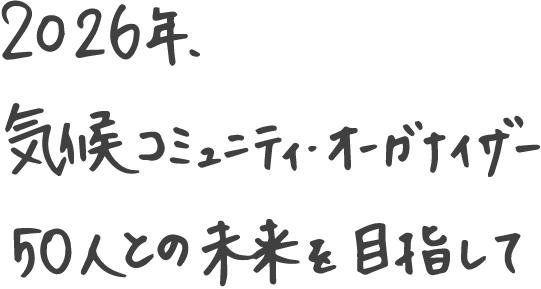 2026年、
気候コミュニティ・オーガナイザー
50人との未来を目指して